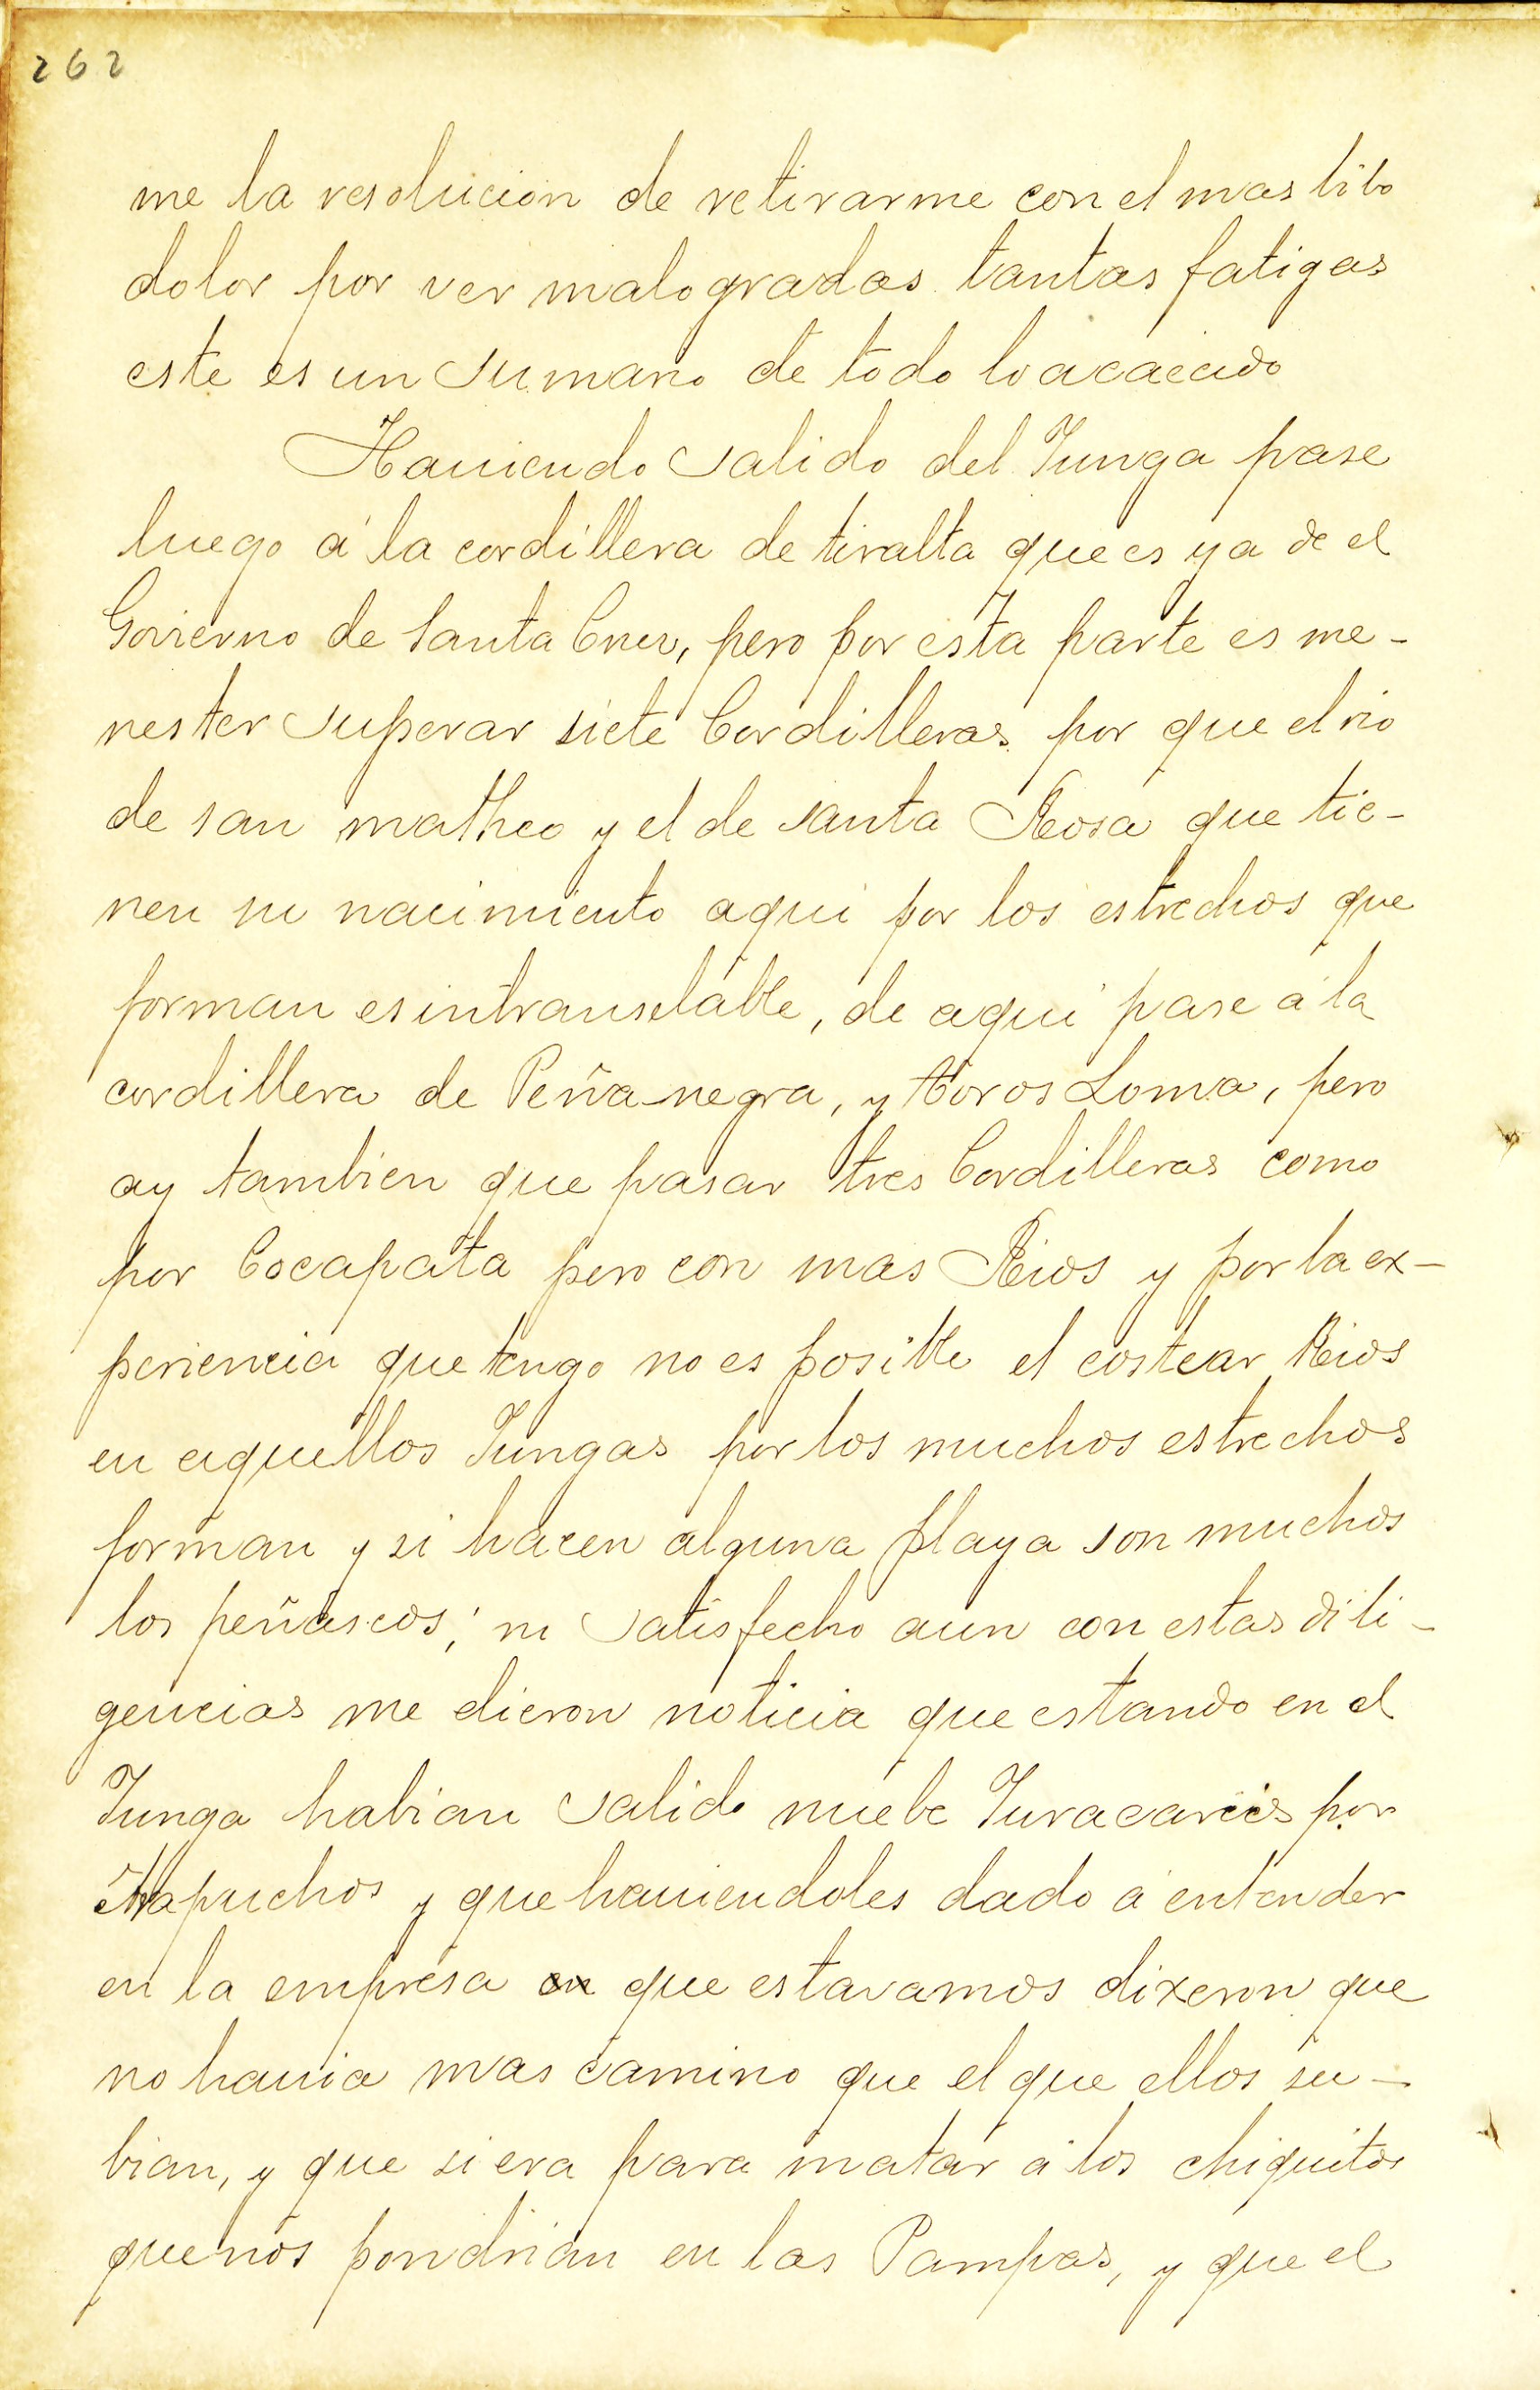 262
me la resolucion de retirarme con el mas bibo
dolor por ver malogradas tantas fatigas
este es un sumario de todo lo acaecido
Hauiendo salido del Junga pase
luego á la cordillera de tiralta que es ya de el
Govierno de Santa Cruz, pero por esta parte es me-
nester superar siete Cordilleras por que el rio
de san matheo y el de santa Rosa que tie-
nen su nacimiento aqui por los estrechos que
forman es, de aqui pase á la
cordillera de Peña negra, y Toros Loma, pero
ay tambien que pasar tres Cordilleras como
por Cocapata pero con mas Rios y por la ex-
periencia que tengo no es posible el costear Rios
en aquellos Jungas por los muchos estrechos
forman y si hacen alguna playa son muchos
los peñascos; ni satisfecho aun con estas dili-
gencias me dieron noticia que estando en el
Junga habian salido nuebe Juracarees por
y que hauiendoles dado á entender
en la empresa en que estavamos dixeron que
no hauia mas camino que el que ellos su-
bian, y que si era para matar á los chiquitos
que nos pondrian en las Pampas, y que el